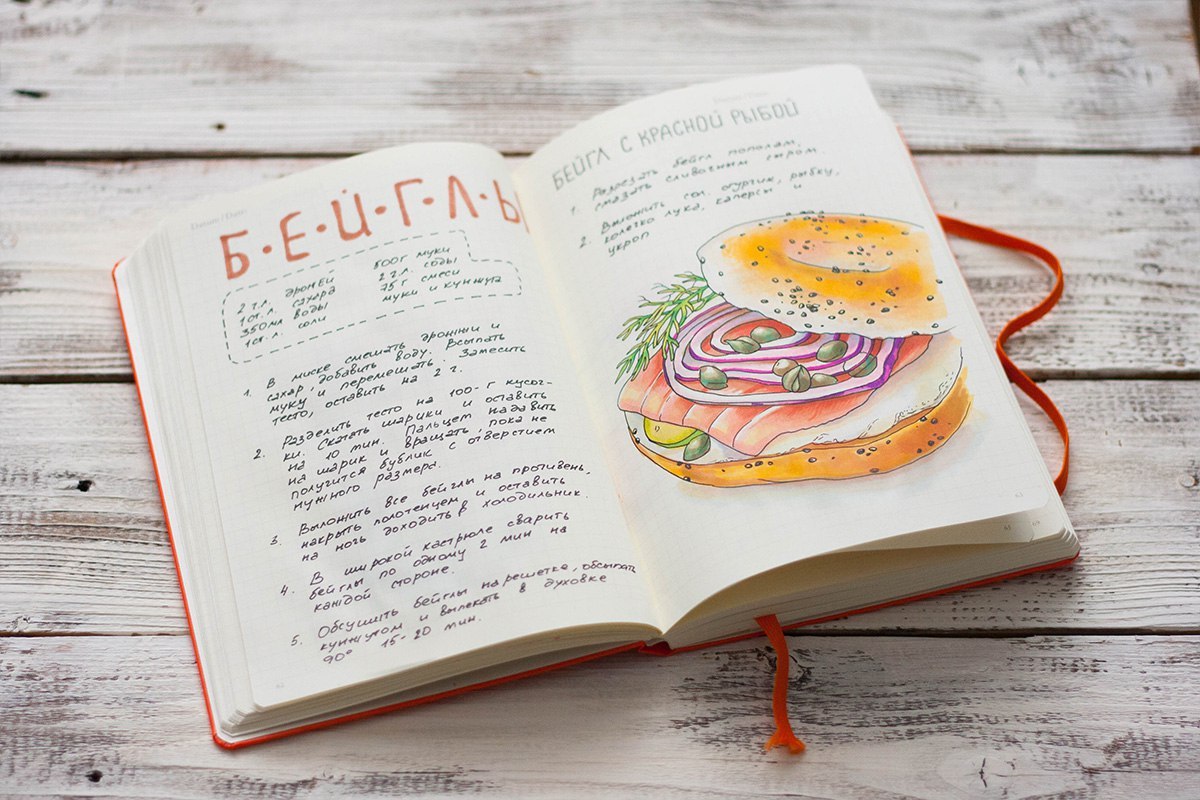 Б·Е·Й·Г·Л·Ы
2 ч.л. дрожжей
1 ст.л. сахара
350 мл воды
1 ст.л. соли
500 г муки
2 ч.л. соды
25 г смеси
муки и кунжута
1. В миске смешать дрожжи и
сахар, добавить воду. Всыпать
муку и перемешать. Замесить
тесто, оставить на 2 г.
2. Разделить тесто на 100-г кусоч-
ки. Скатать шарики и оставить
на 10 мин. Пальцем надавить
на шарик и вращать, пока не
получится бублик с отверстием
нужного размера.
3. Выложить все бейглы на противень,
накрыть полотенцем и оставить
на ночь доходить в холодильник.
4. В широкой кастрюле сварить
бейглы по одному 2 мин на
каждой стороне.
5. Обсушить бейглы на решетке, обсыпать
кунжутом и выпекать в духовке
90° 15-20 мин.
БЕЙГЛ С КРАСНОЙ РЫБОЙ
1. Разрезать бейгл пополам,
смазать сливочным сыром.
2. Выложить сол. огурчик, рыбку,
колечко лука, каперсы и
укроп